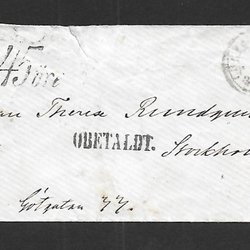 45 öre
Theresa Rundqvis
OBETALDT.
Stockhol
Götgatan 77.